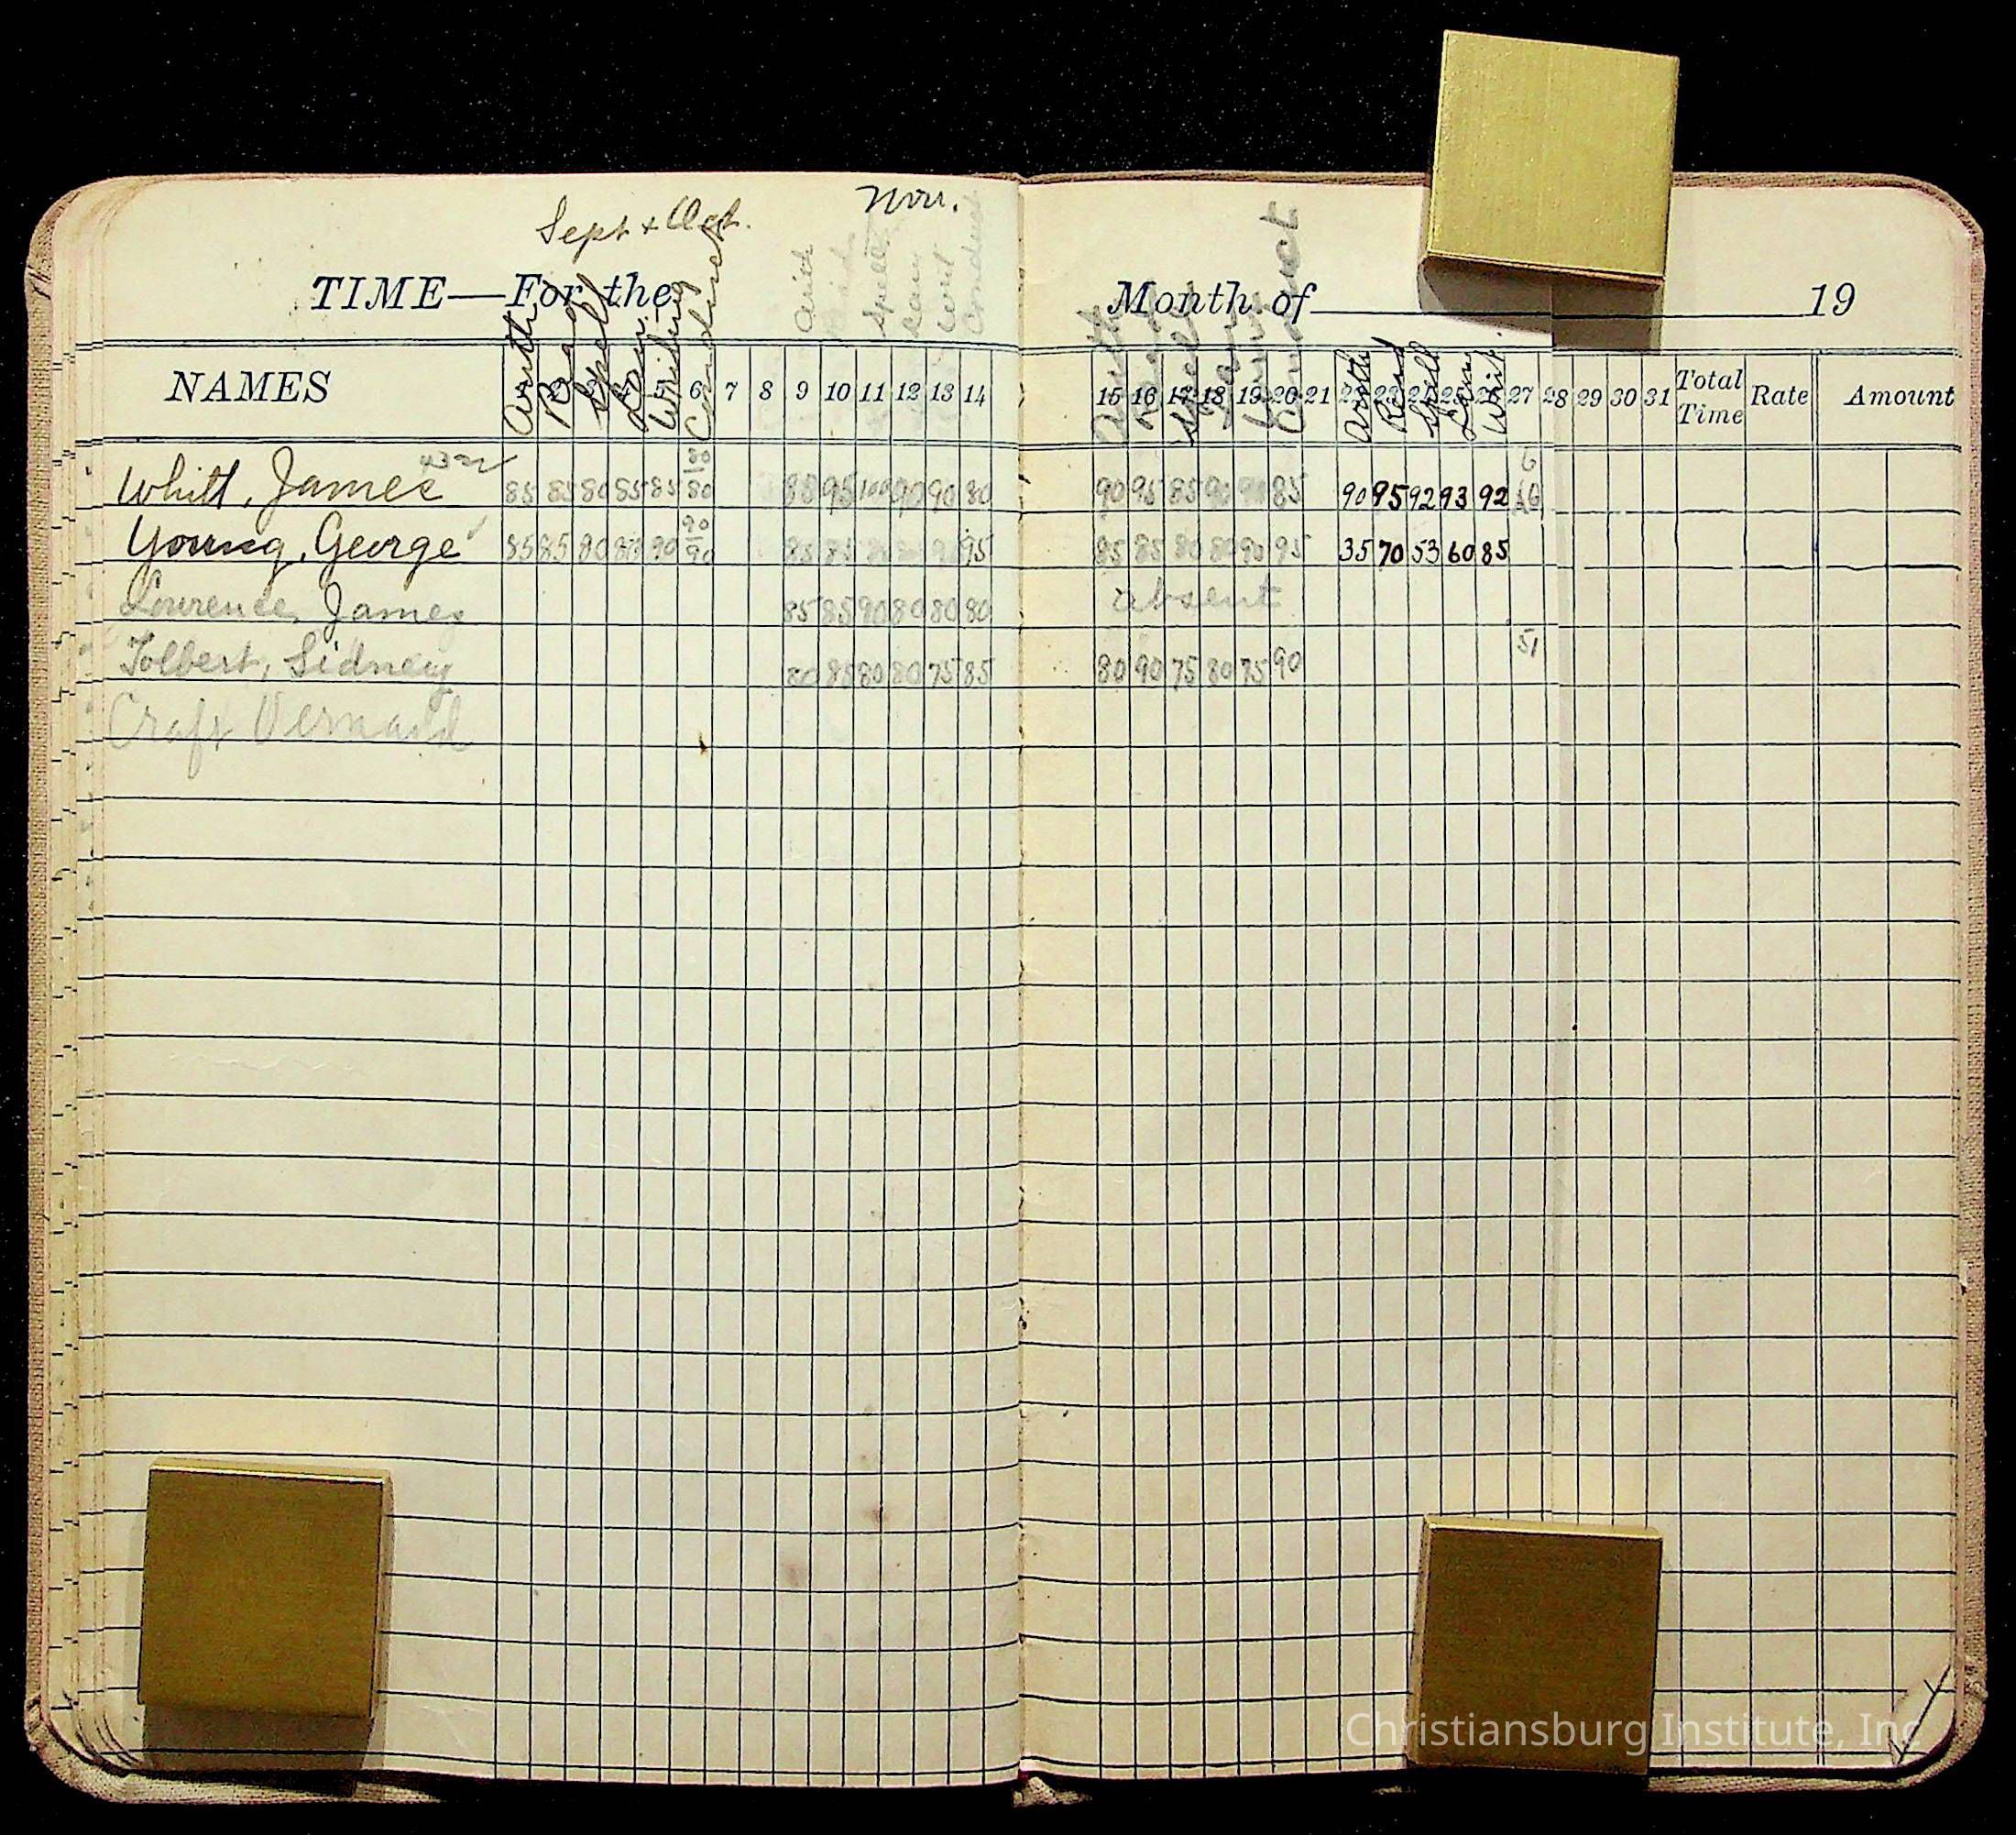 Sept + Oct. Nov.
TIME—For the Month of 19
Arith Read Spell Lang. Writing Conduct Arith Read Spell Lang Writ Conduct Arith Read Spell Lang Conduct Arith Read Spell Lang Writ.
NAMES 6 7 8 9 10 11 12 13 14 15 16 17 18 19 20 21 27 28 29 30 31 Total Time Rate Amount
Whitt, James 85 85 80 85 85 80 80 85 95 100 90 90 80 90 95 85 90 90 85 90 95 92 93 92
Young, George 85 85 80 80 90 90 90 85 85 95 85 85 80 80 90 95 35 70 53 60 85
Lowrence, James 85 85 90 80 80 80 absent
Tolbert, Sidney 80 85 80 80 75 85 80 90 75 80 75 90 51
Craft Vernard
Christiansburg Institute, Inc